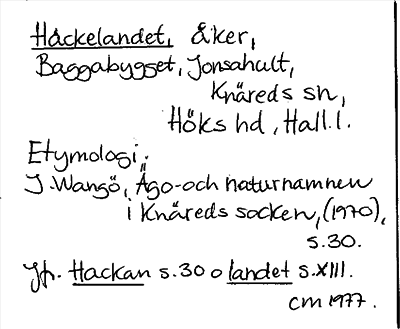 Håckelandet, åker,
Baggabygget, Jonsahult,
Knäreds sn,
Höks hd, Hall.l.
Etymologi:
J. Wangö, Ägo- och naturnamnen
i Knäreds socken, (1970),
s.30.
Jfr. Hackan s.30 o landet s.XIII.
CM 1977.